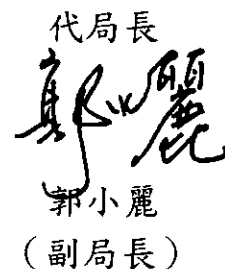 代局長
郭小麗
郭小麗
（副局長）